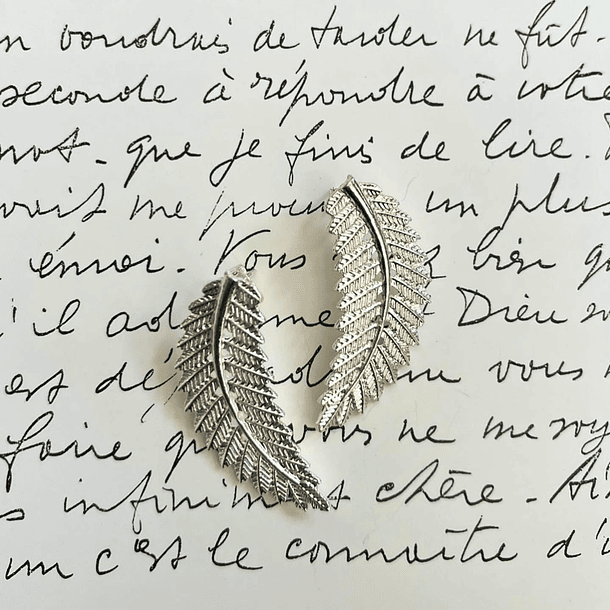 n voudrais de tarder ne fût-
seconde à répondre à votre
mot- que je finis de lire.
me un plus
émoi. Vous bien
'il Dieu
est dé vous
faire vous ne me
infiniment chère. Ai
un c'est le connaître d'